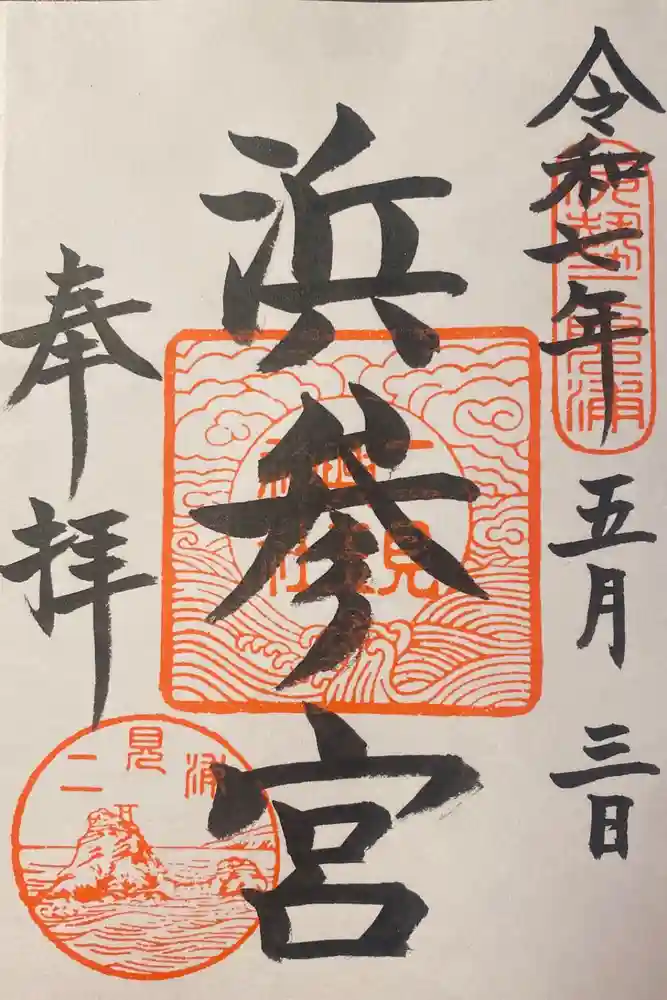 令和七年 五月 三日
伊勢二見浦
浜参宮
二見興玉神社
奉拝
二見浦